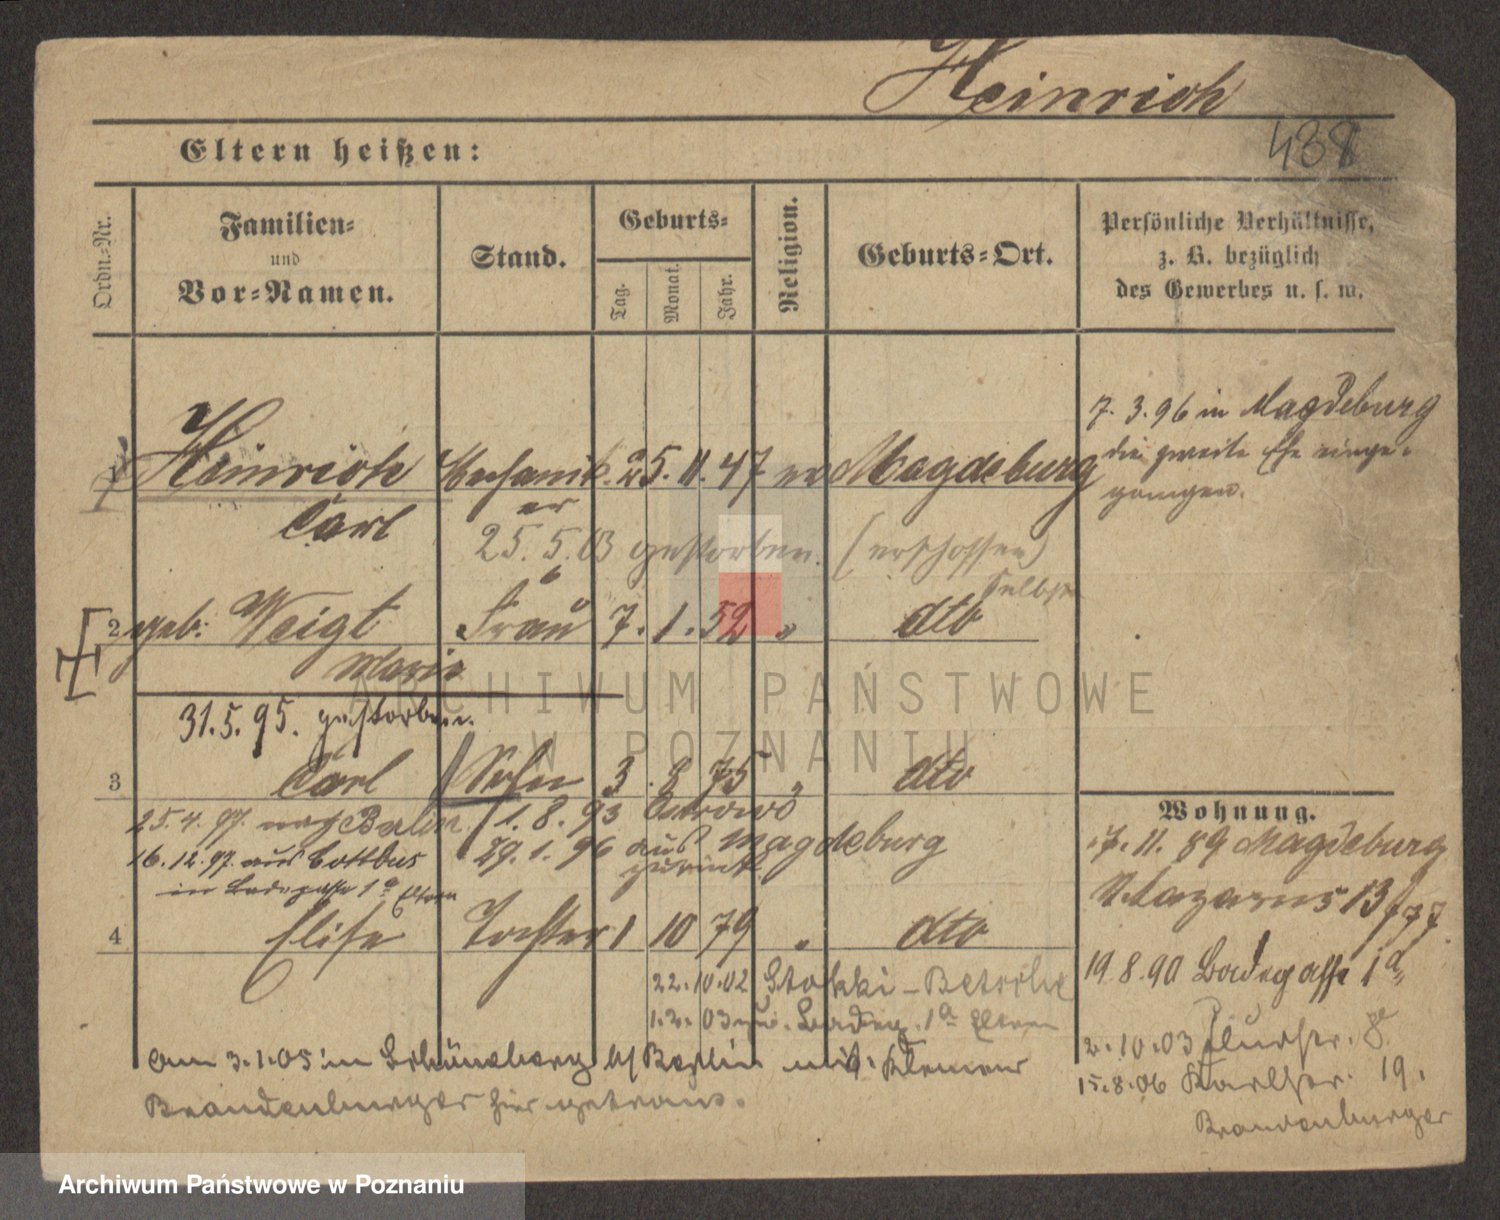 Heinrich
488
Eltern heißen:
Ordn.-Nr.
Familien-
und
Vor-Namen.
Stand.
Geburts-
Tag.
Monat.
Jahr.
Religion.
Geburts-Ort.
Persönliche Verhältnisse,
z. B. bezüglich
des Gewerbes u. s. w.
1 Heinrich Mechanik. 25. 11. 47 ev Magdeburg
er
Carl
7. 3. 96 in Magdeburg
die zweite Ehe einge-
gangen.
25. 5. 03 gestorben. (erschossen)
selbst
2 geb. Weigt Frau 7. 1. 52 " dto
Marie
31. 5. 95. gestorben.
3 Carl Sohn 3. 8 75 " dto
25. 4. 97. nach Berlin. 1. 8. 93 Ostrowo
16. 12. 97. aus Cottbus 29. 1. 96 aus Magdeburg
zurück
in Badegasse 1a Eltern
4 Elise Tochter 1 10 79 " dto
22. 10. 02
1. 2. 03 Badeg. 1a Eltern
am 3. 1. 05 in b/ Berlin mit Klemens
Brandenburger hier getraut.
Wohnung.
7. 11. 89 Magdeburg
St. Lazarus 13
19. 8. 90 Badegasse 1a
2. 10. 03 Flurstr. 8
15. 8. 06 Karlstr. 19.
Brandenburger
ARCHIWUM PAŃSTWOWE
W POZNANIU
Archiwum Państwowe w Poznaniu